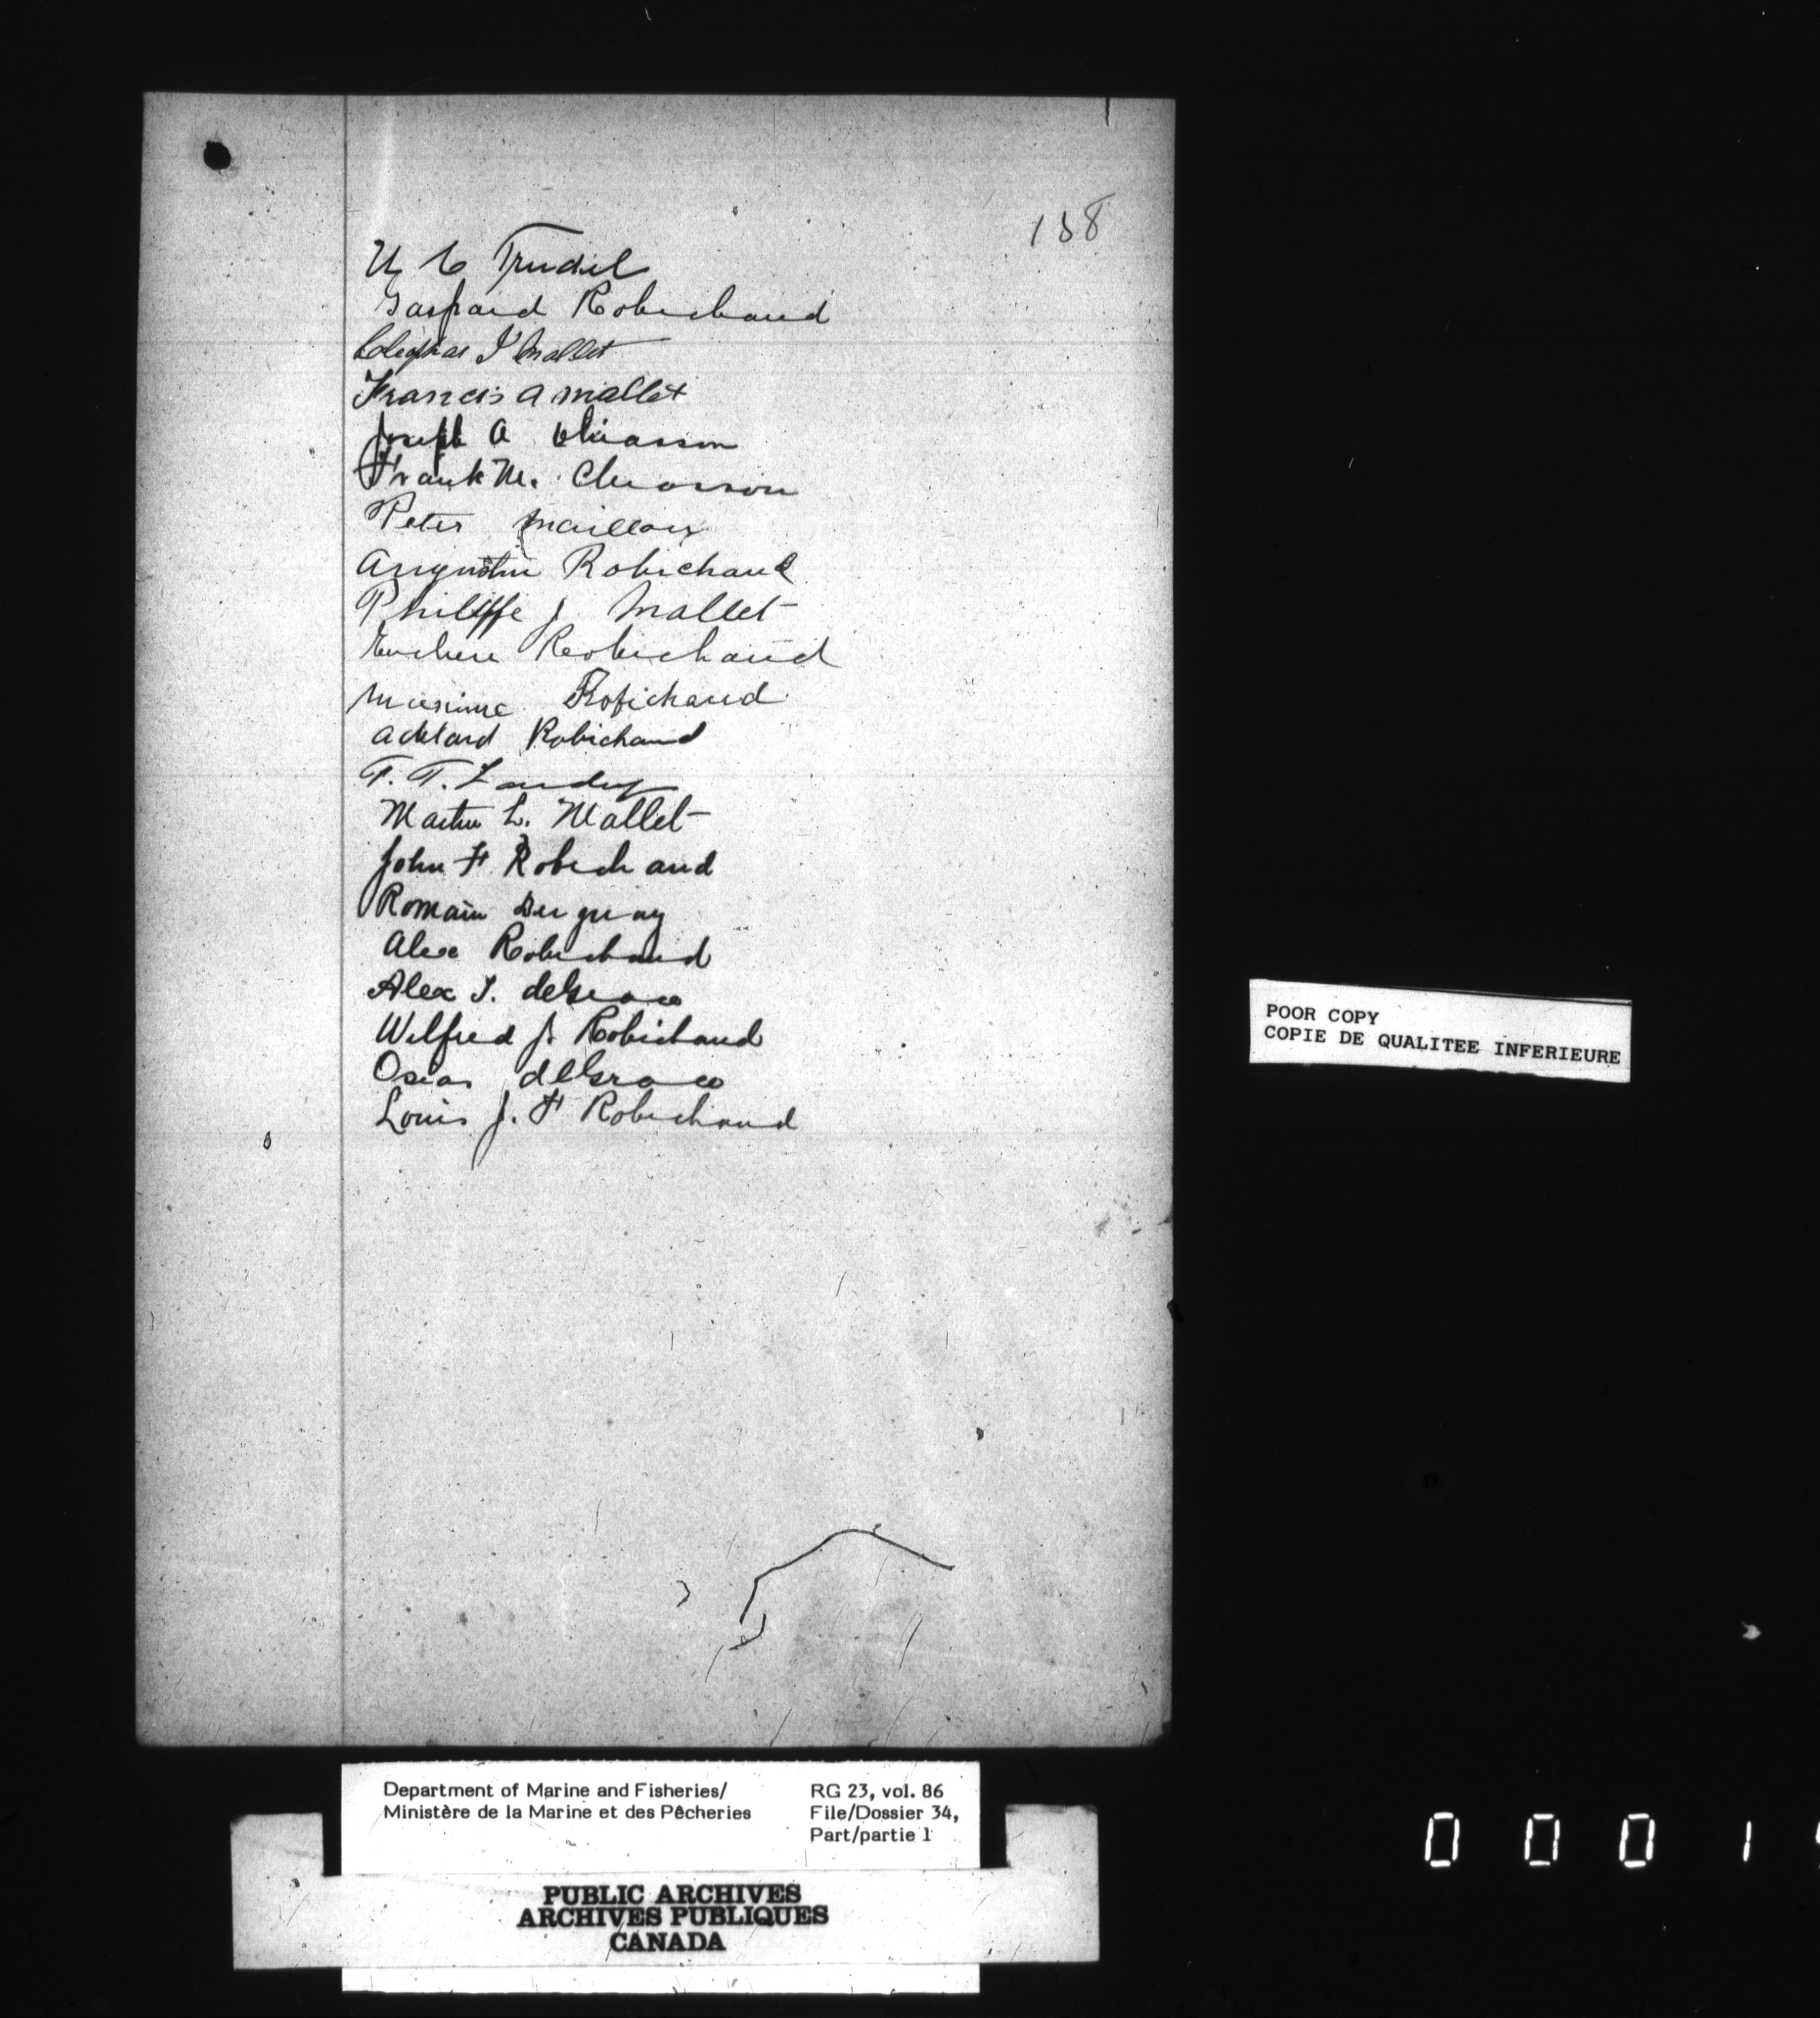 138
Trudel
Gaspard Robichaud
Mallet
Francis A Mallet
Joseph A Chiasson
Frank M. Chiasson
Peter Mailloux
Augustin Robichaud
Philippe J Mallet
Robichaud
Robichaud
Adelard Robichaud
F. T. Landry
Martin L. Mallet
John F Robichaud
Romain Duguay
Alex Robichaud
Alex J. deGrace
Wilfred J. Robichaud
Osias deGrace
Louis J. F Robichaud
POOR COPY
COPIE DE QUALITEE INFERIEURE
Department of Marine and Fisheries/ RG 23, vol. 86
Ministère de la Marine et des Pêcheries File/Dossier 34,
Part/partie 1
PUBLIC ARCHIVES
ARCHIVES PUBLIQUES
CANADA
0 0 0 1